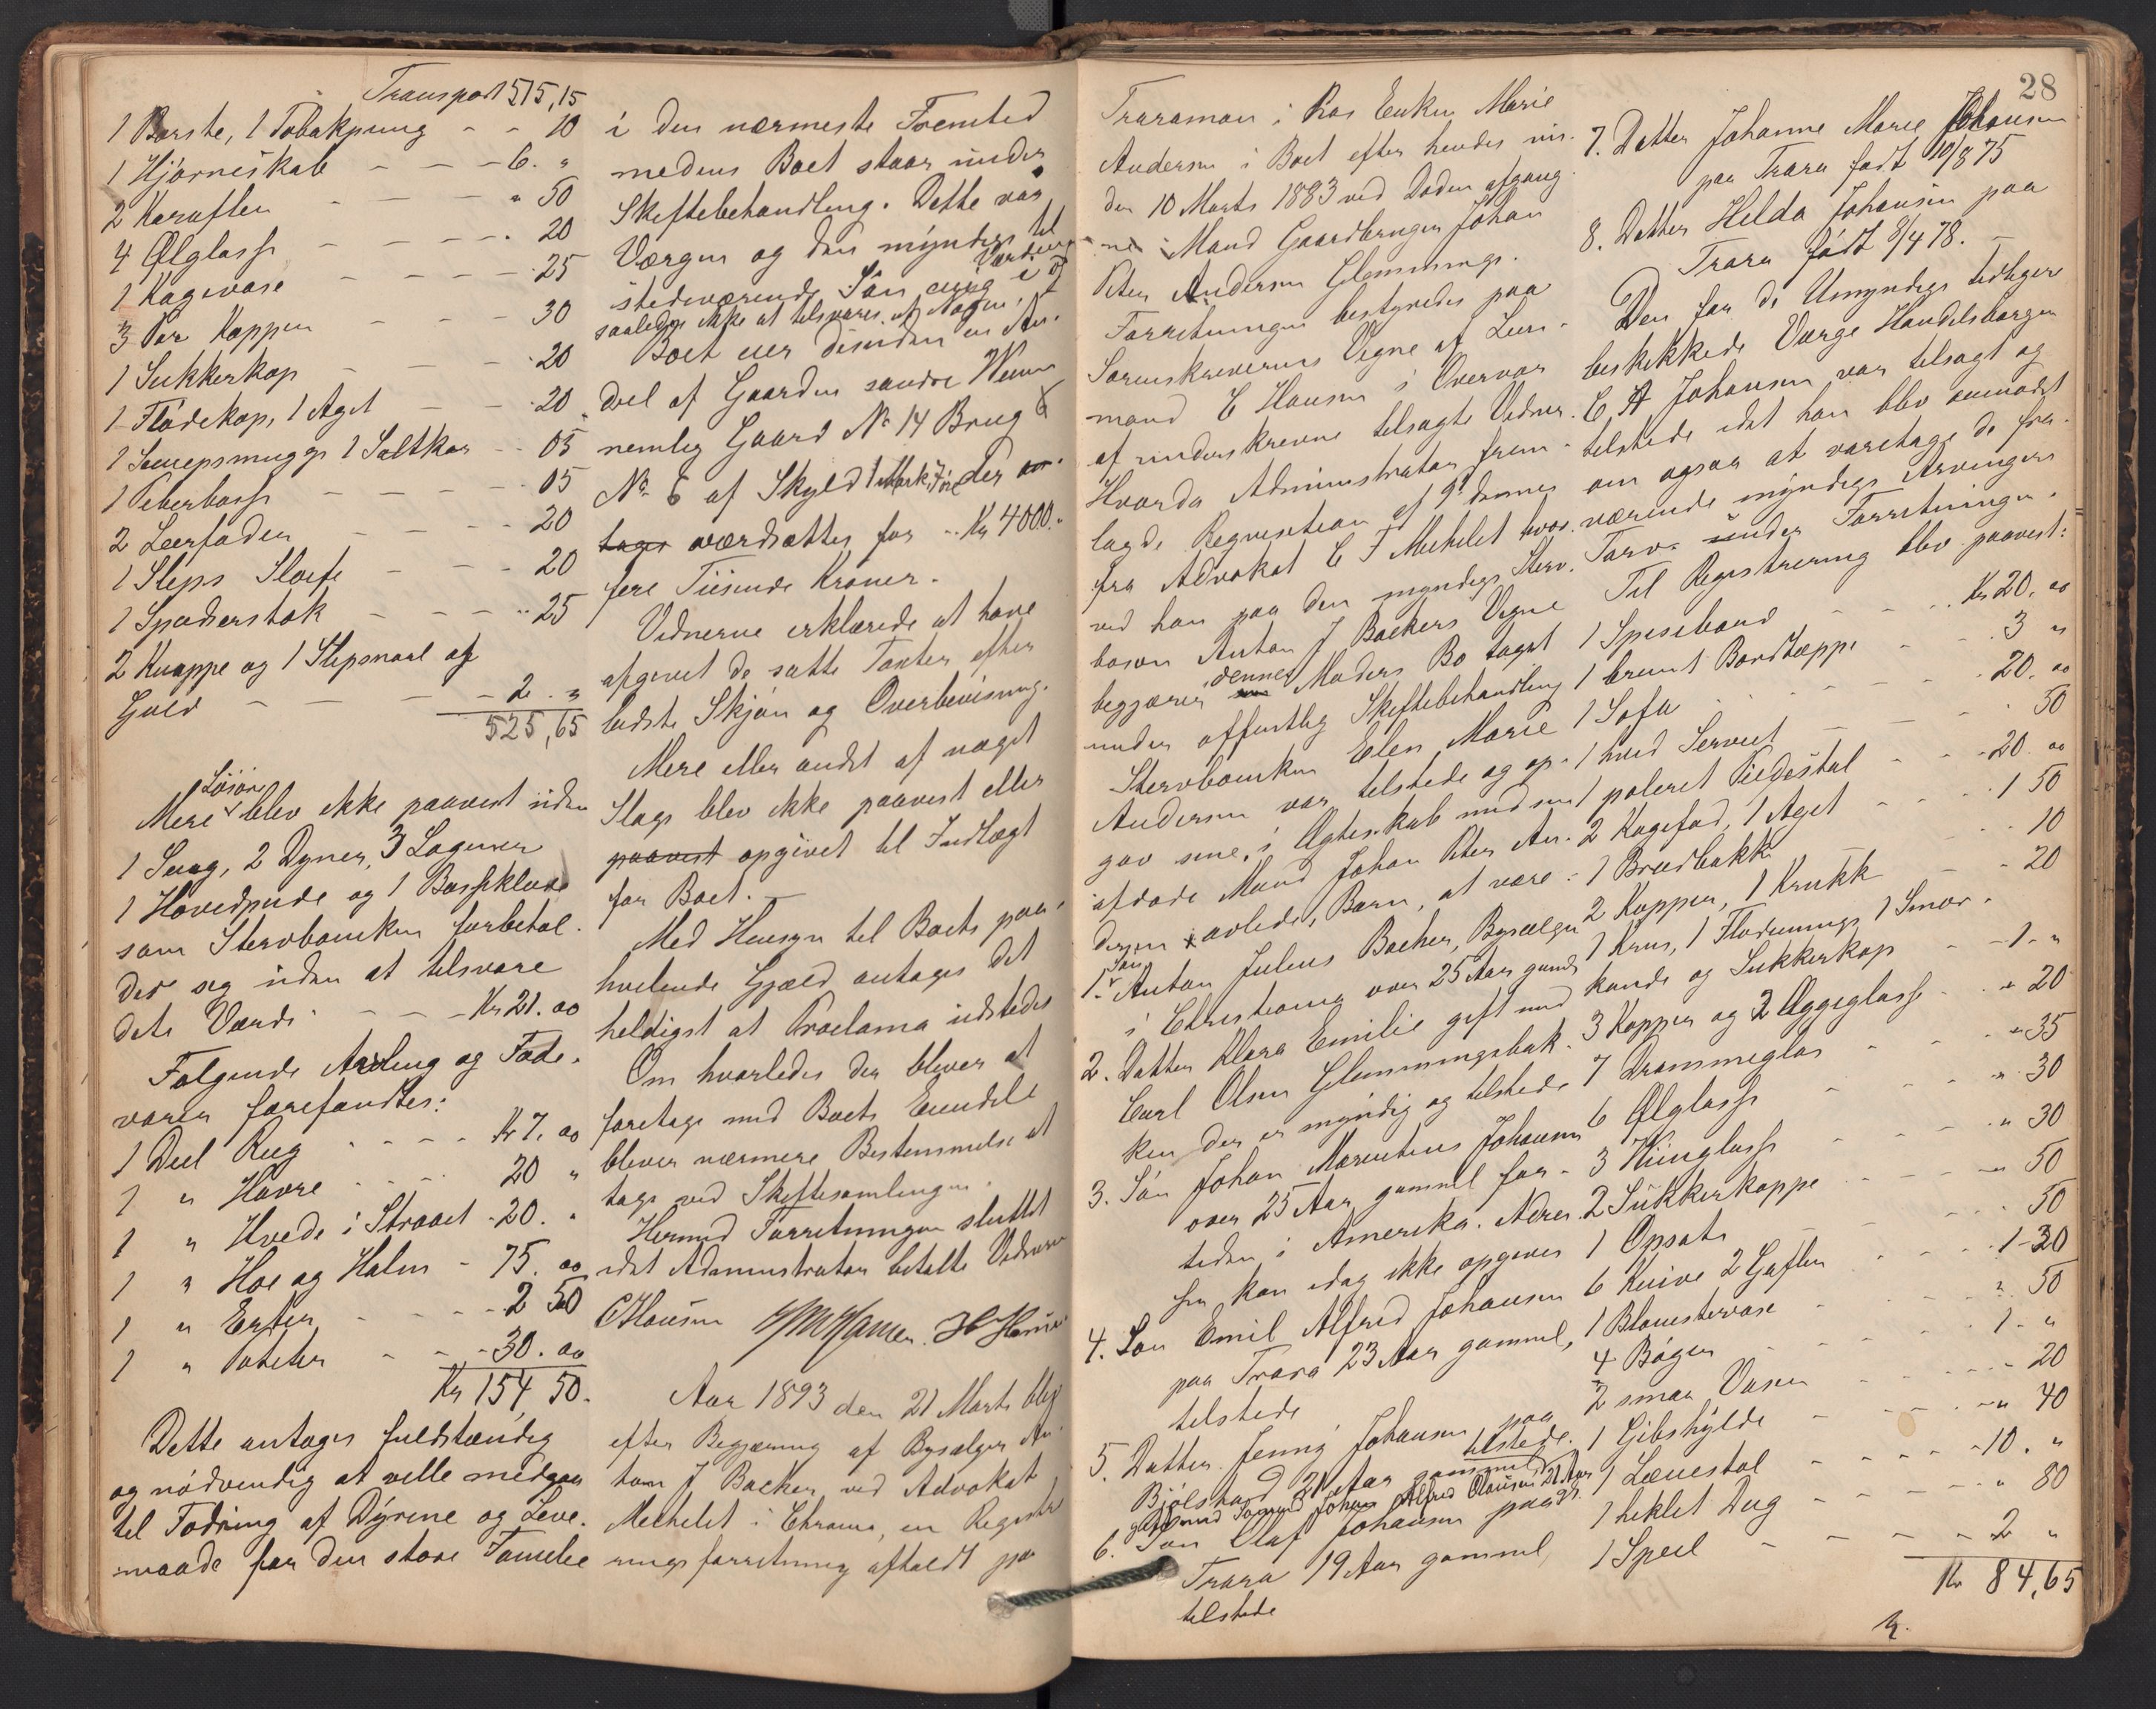 Transport 515,15
1 Børste, 1 Tobakpung - - 10
1 Hjørneskab - - - 6. "
2 Karafler - - - " 50
4 Ølglasse - - - - 20
1 Kagevase - - - - 25
3 Par Kopper - - - 30
1 Sukkerkop - - - 20
1 Flødekop, 1 Aget - - 20
1 Senepsmugge 1 Saltkar - - 05
1 Peberbøsse - - - - 05
2 Leerfader - - - 20
1 Slips Sloife - - - 20
1 Spaderstok - - - - 25
2 Knappe og 1 Slipsnaal af
Guld - - - 2. "
525,65
Mere Løsøre blev ikke paavist uden
1 Seng, 2 Dyner, 3 Lagener
1 Hovedpude og 1
som Stervboenken forbehol-
der seg uden at tilsvare
dets Værdi - - - Kr 21. 00
Følgende Avling og Føde-
varer forefandtes:
1 Deel Rug - - - - Kr 7. 00
1 " Havre - - - 20 "
1 " Hvede i Straaet - 20. "
1 " Hoe og Halm - 75. 00
1 " Erter - - - 2 50
1 " Poteter - - - 30. 00
Kr 154,50.
Dette antages fuldstændig
og nødvendig at ville medgaa
til Fødring af Dyrene og Leve-
maade for den store Familie
i den nærmeste Fremtid
medens Boet staar under
Skiftebehandling. Dette var
Værgen og den myndige til
stedeværende Søn enig i
saaledes ikke at tilsvares af Nogen
Boet eier desuden en An-
del af Gaarden søndre
nemlig Gaard No 14 Brug
No 6 af Skyld 1 Mark der an-
tages værdsættes for - Kr 4000. "
fire Tusinde Kroner.
Vidnerne erklærede at have
afgivet de satte Taxter efter
bedste Skjøn og Overbevisning.
Mere eller andet af noget
Slags blev ikke paavist eller
paavist opgivet til Indtægt
for Boet. -
Med Hensyn til Boets paa-
hvilende Gjæld antages det
heldigst at Proclama udstedes
Om hvorledes der bliver at
foretage med Boets Eiendele
bliver nærmere Bestemmelse at
tage ved Skiftesamlingen.
Hermed Forretningen sluttet
idet Administrator betalte Vidnerne
C Hansen H Hansen
Aar 1893 den 21 Marts blev
efter Begjæring af Bysælger An-
ton J Backer ved Advokat
Mechelet i Chrania, en Registre
rings forretning afholdt paa
28
Traraman i Ras Enken Marie
Andersen i Boet efter hendes
den 10 Marts 1883 ved Døden afgang-
ne Mand Gaardbruger Johan
Peter Andersen Glemminge.
Forretningen bestyredes paa
Sorenskriverens Vegne af Lens-
mand C Hansen i Overvær
af underskrevne tilsagte Vidner.
Hvorda Administrator frem-
lagde Requisition af 9de dennes
fra Advokat C F Mechelet hvor-
ved han paa den myndige Sterv-
boson Anton J Backers Vegne
begjærer dennes Moders Bo taget
under offentlig Skiftebehandling
Stervboenken Elen Marie
Andersen var tilstede og op-
gav sine, i Ægteskab med sin
afdøde Mand Johan Peter An-
dersen avlede, Børn, at være:
1. Søn Anton Julius Backer, Bysælger
i Christiania over 25 Aar gammel
2. Datter Klara Emilie gift med
Carl Olsen Glemmingsbak-
ken der er myndig og tilstede
3. Søn Johan Marentius Johansen
over 25 Aar gammel for-
tiden i Amerika. Adres-
sen kan idag ikke opgives
4. Søn Emil Alfred Johansen
paa Trara 23 Aar gammel,
tilstede
5. Datter Jenny Johansen paa
Bjølstad 21 Aar gammel tilstede.
gift med Johan Alfred Clausen 21 Aar
6. Søn Olaf Johansen paa
Trara 19 Aar gammel,
tilstede
7. Datter Johanne Marie Johansen
paa Trara født 10/8 75
8. Datter Helda Johansen paa
Trara født 8/4 78. -
Den for de Umyndige tidligere
beskikkede Værge Handelsborger
C. A Johansen var tilsagt og
tilstede idet han blev anmodet
om ogsaa at varetage de fra-
værende myndige Arvingers
Tarv under Forretningen.
Til Registrering blev paavist:
1 Spisebord - - - Kr 20. 00
1 brunt Bordtæppe - - - 3 "
1 Sofa - - - - 20. 00
1 hvid Serviet - - - 50
1 poleret Piedestal - - - 20. 00
2 Kagefad, 1 Aget - - - 1 50
1 Brødbakke - - - 10
2 Kopper, 1 Krukke - - 20
1 Krus, 1 Flødemugge 1 Smør-
kande og Sukkerkop - - 1. "
3 Kopper og 2 Æggeglasse - - " 20
7 Drammeglas - - - " 35
6 Ølglasse - - - " 30
3 Viinglasse - - - " 30
2 Sukkerkoppe - - - " 50
1 Opsats - - - - 50
6 Knive 2 Gafler - - - 1-30
1 Blomstervase - - - " 50
4 Bøger - - - 1. "
2 smaa Vaser - - - - 20
1 Gibshylde - - - " 40
1 Lænestol - - - 10. "
1 heklet Dug - - - " 80
1 Speil - - - 2 "
Kr 84,65